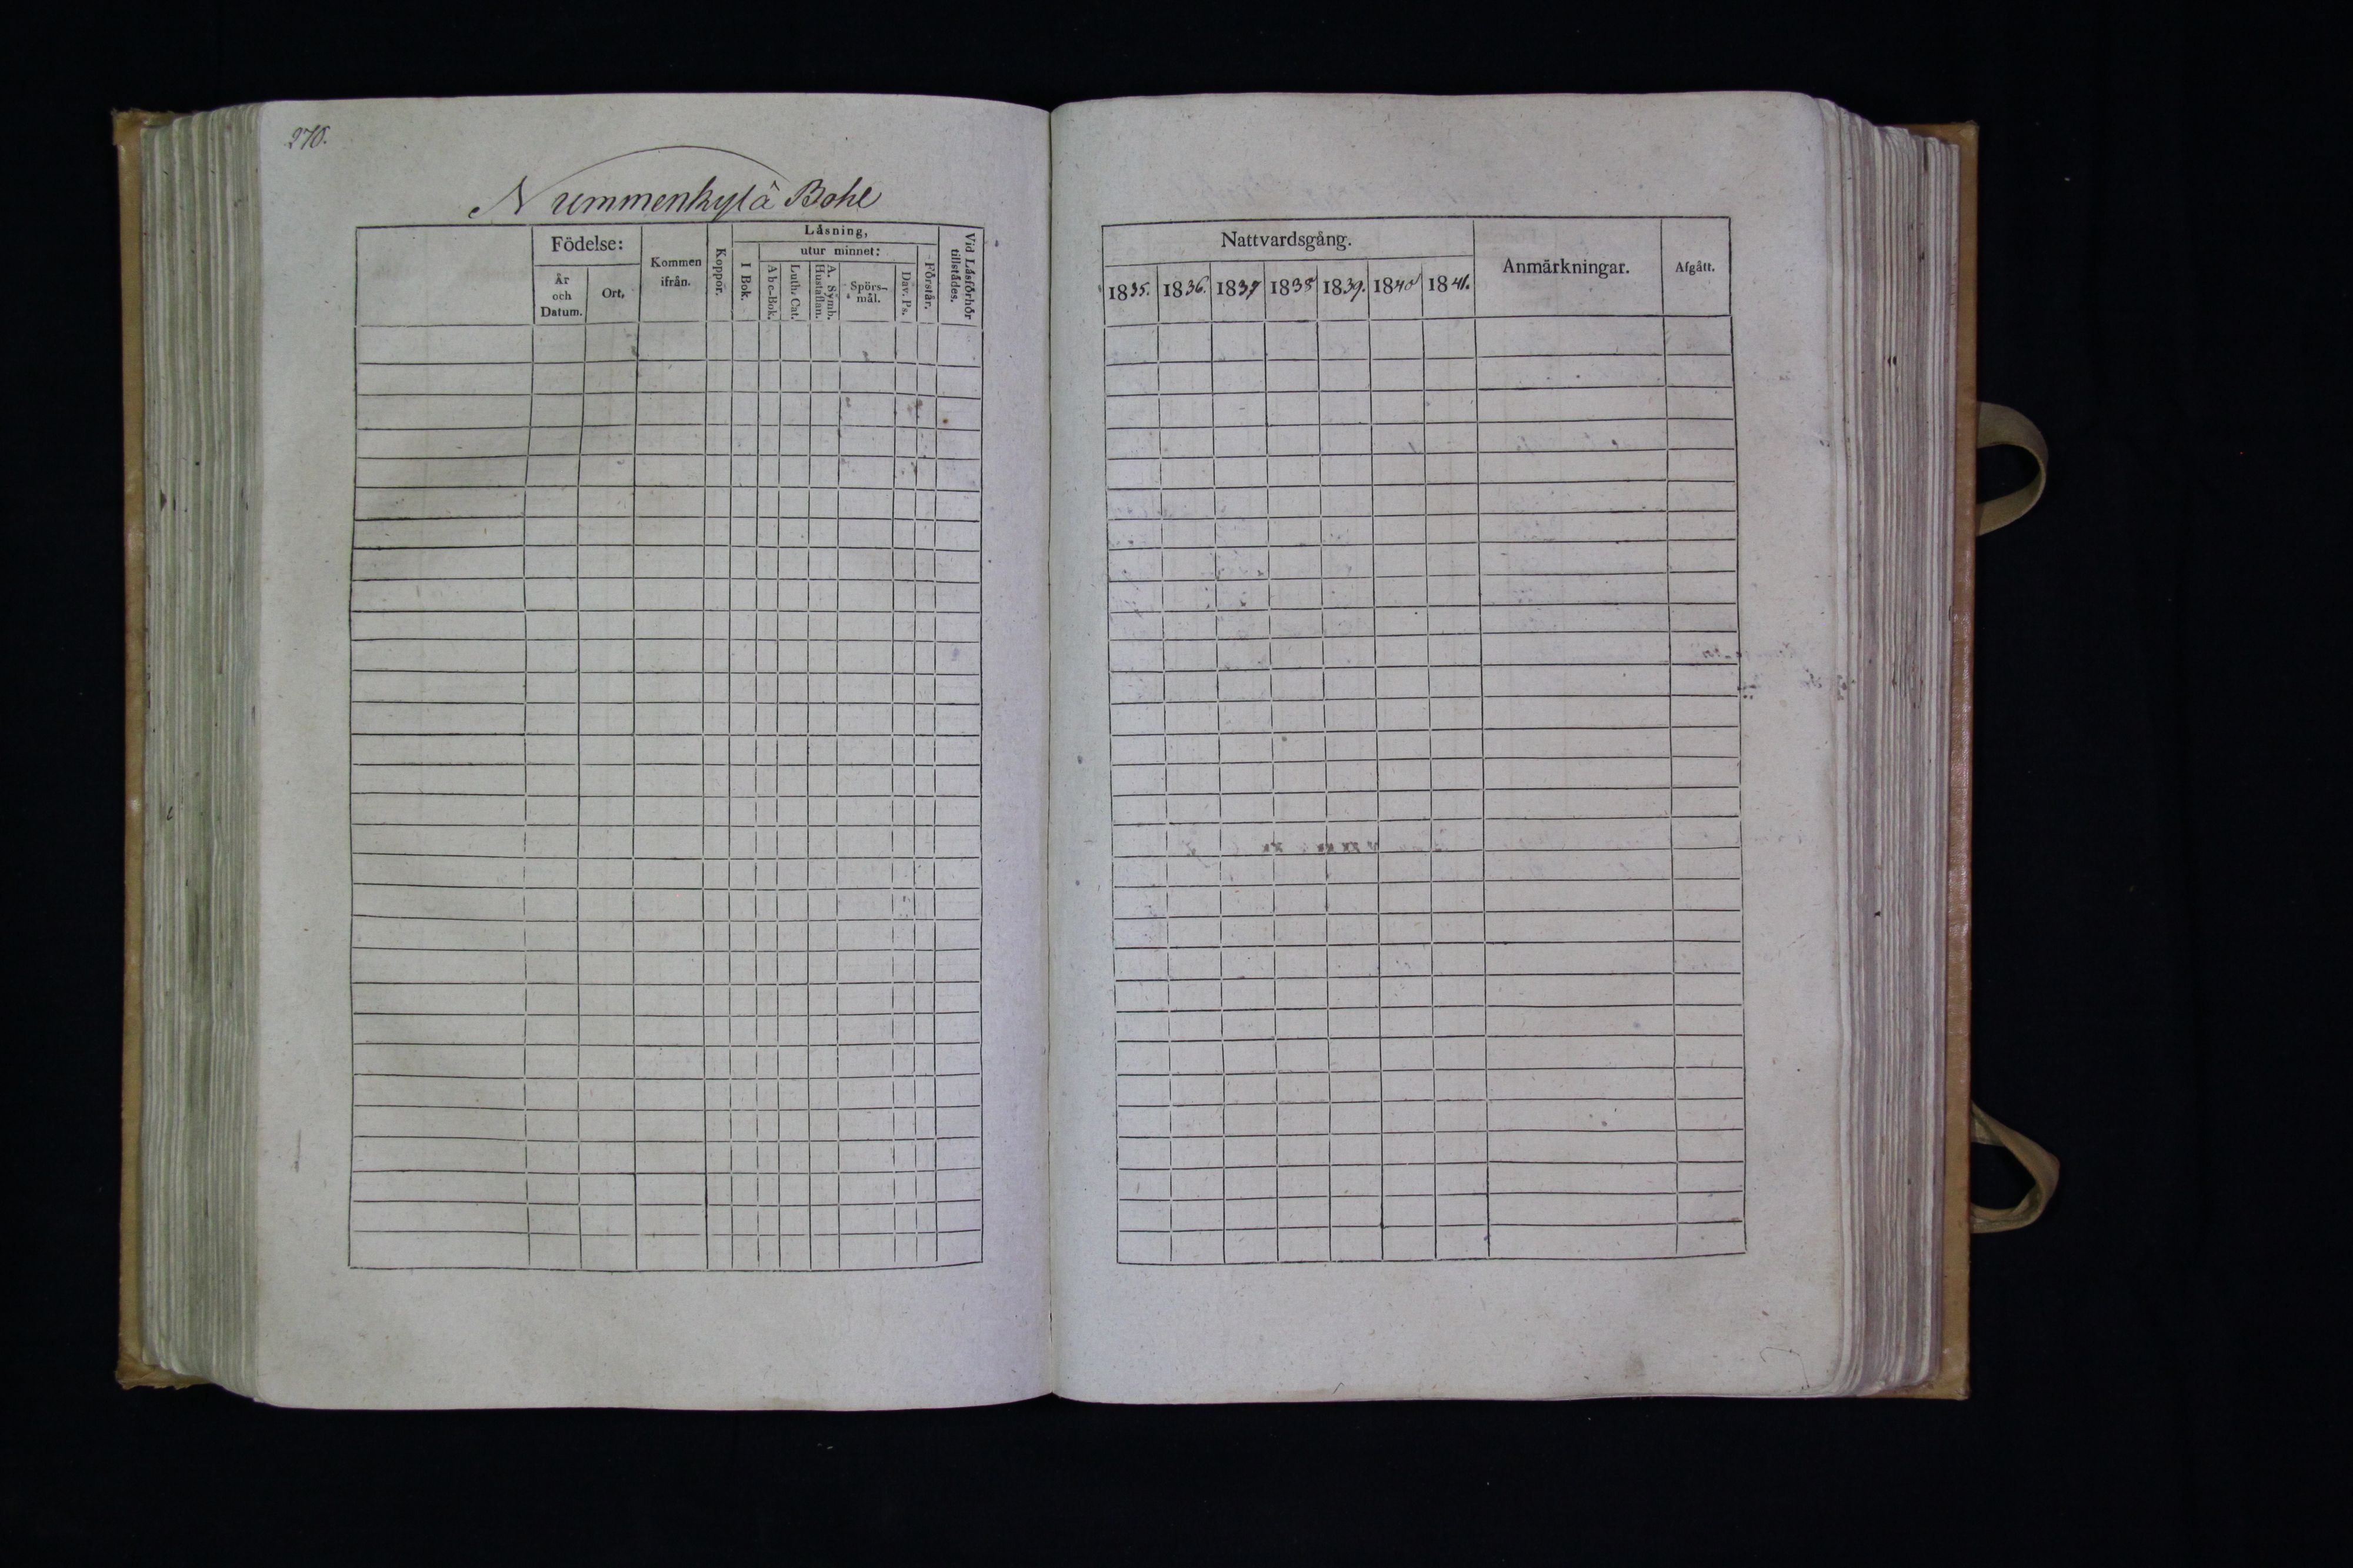 270.
Nummenkylä Bohl
Födelse:
År och Datum.
Ort.
Kommen ifrån.
Koppor.
Läsning,
I Bok.
utur minnet:
Abc-Bok.
Luth. Cat.
A. Symb. Hustaflan.
Spörs-mål.
Dav. Ps.
Förstår.
Vid Läsförhör tillstädes.
Nattvardsgång.
1835. 1836. 1837 1838 1839. 1840 1841.
Anmärkningar.
Afgått.